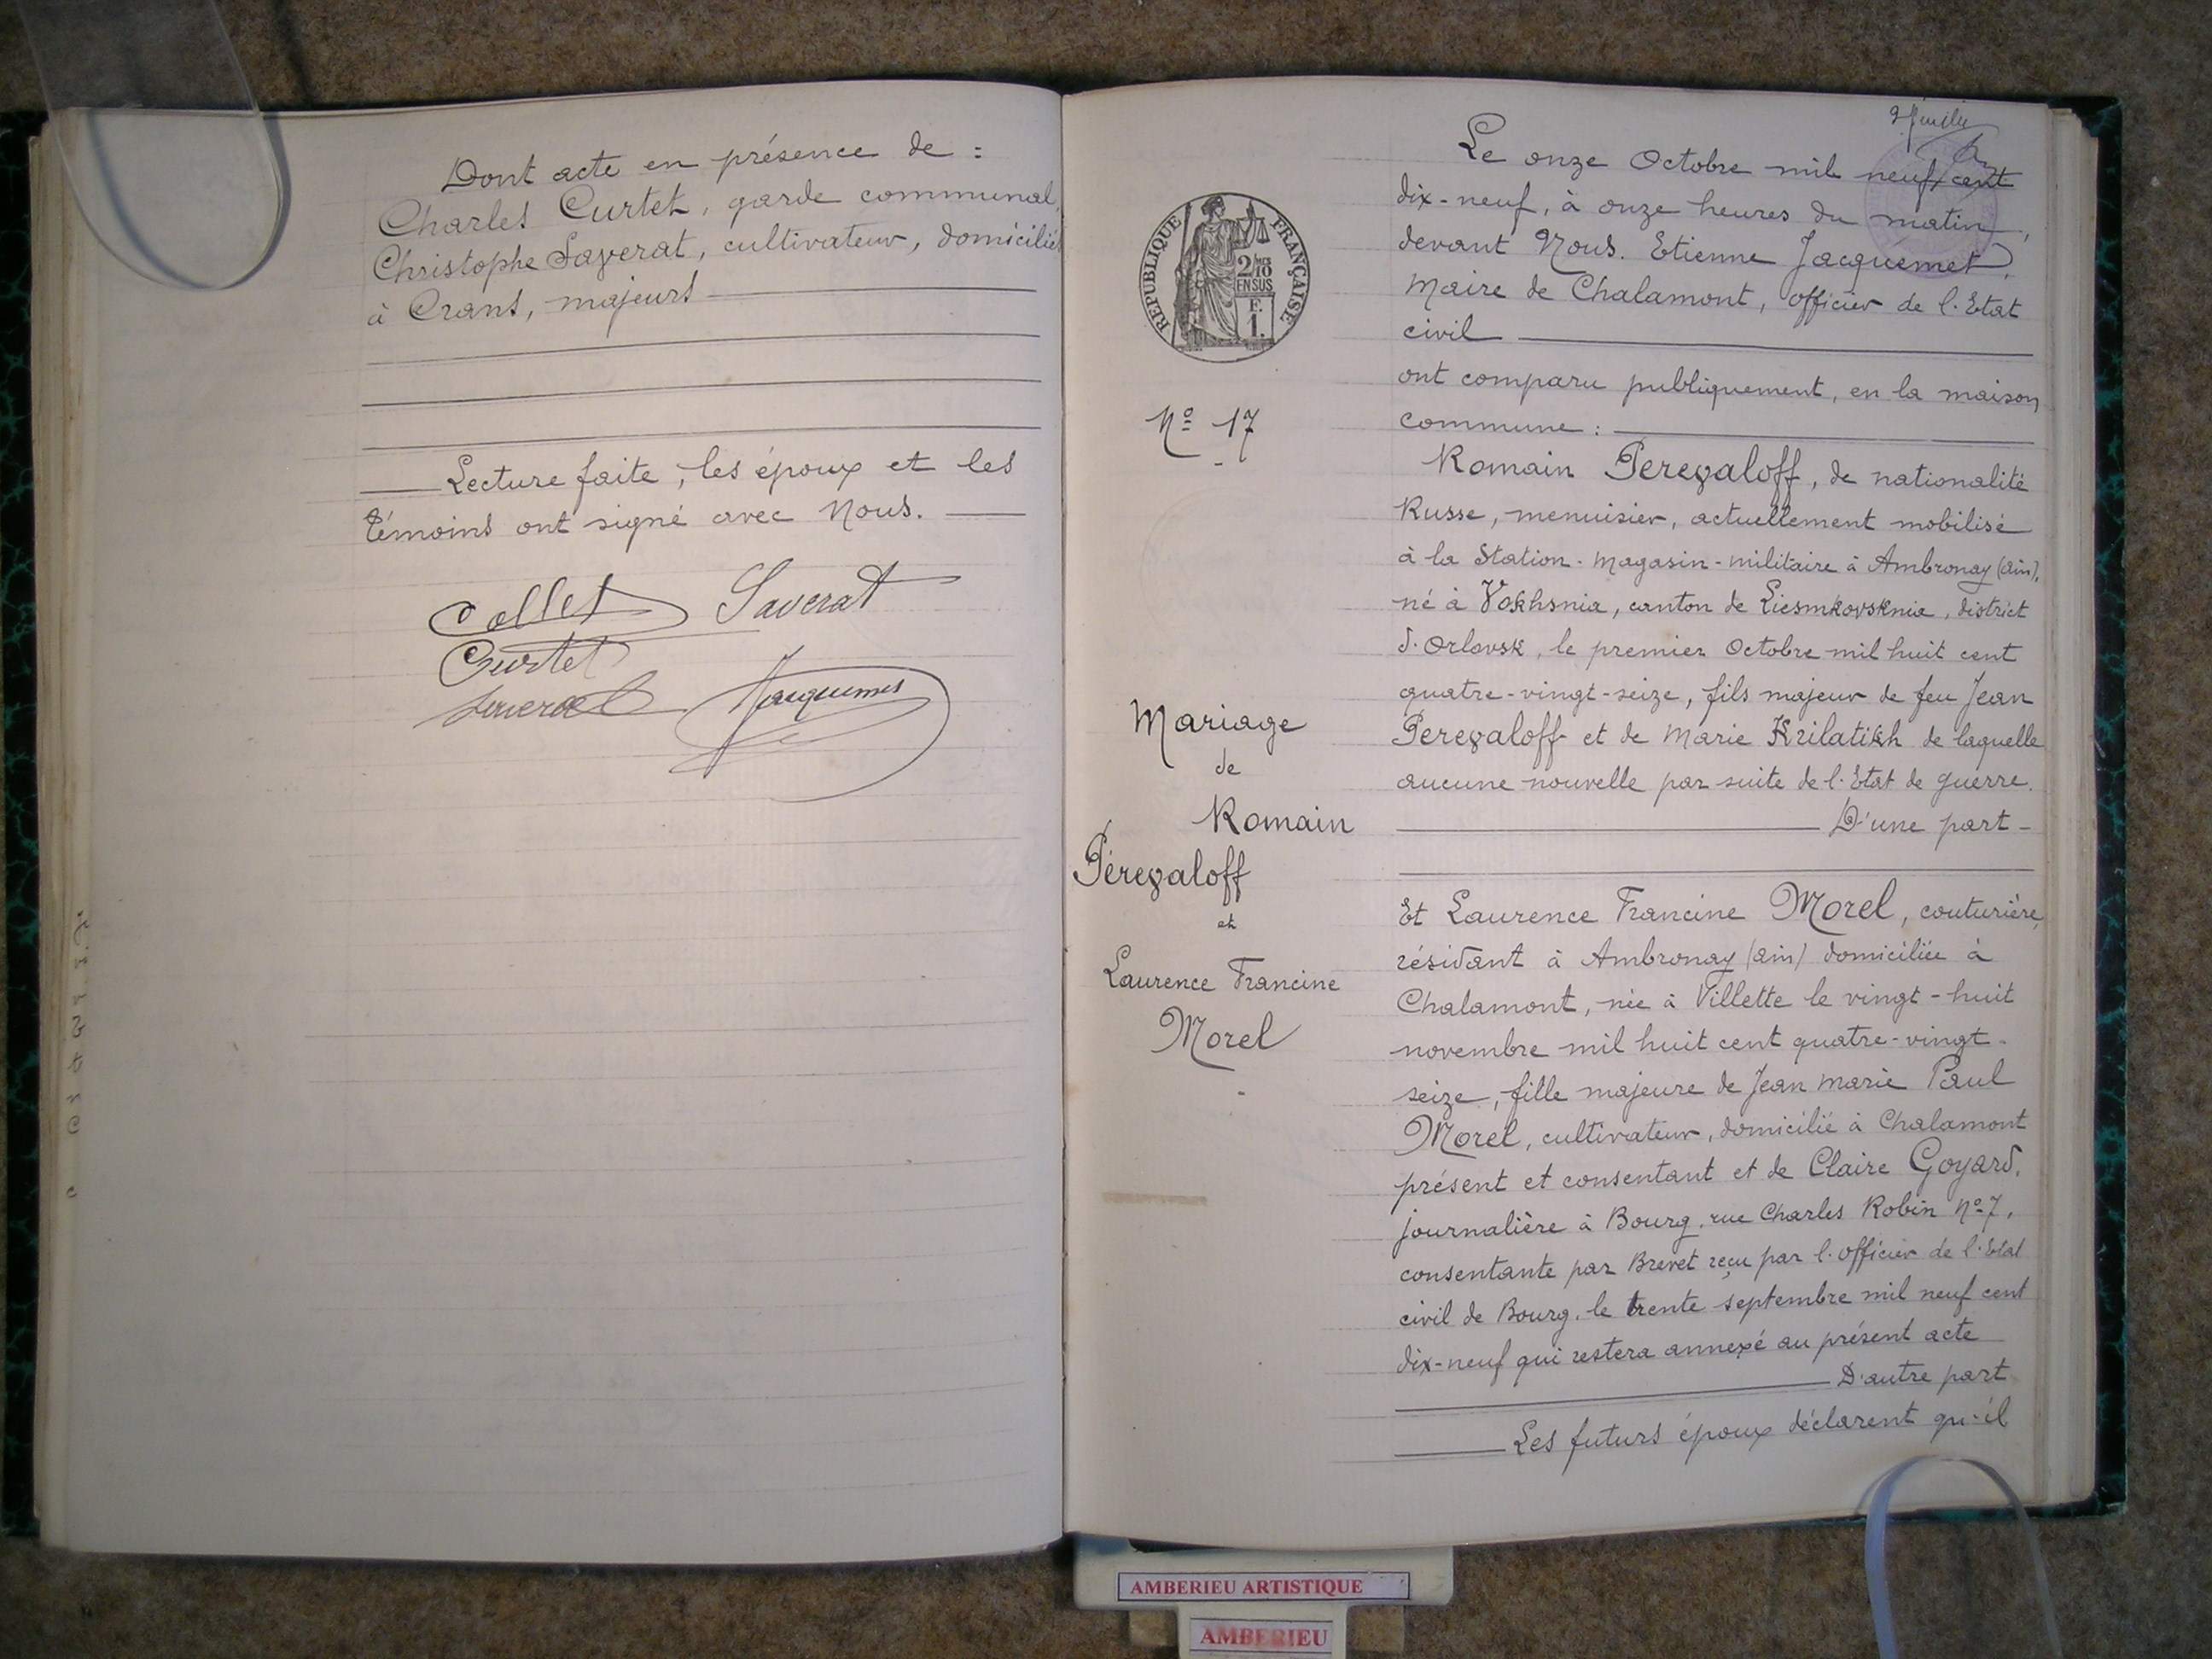 Dont acte en présence de :
Charles Curtet, garde communal,
Christophe Saverat, cultivateur, domiciliés
à Crans, majeurs
Lecture faite, les époux et les
témoins ont signé avec Nous.
Collet Saverat
Curtet
Jacquemet
2e feuille
RÉPUBLIQUE FRANÇAISE
2/10
EN SUS
F.
1.
Le onze Octobre mil neuf cent
dix-neuf, à onze heures du matin,
devant Nous. Etienne Jacquemet,
Maire de Chalamont, officier de l'Etat
civil
ont comparu publiquement, en la maison
commune :
Romain Perevaloff, de nationalité
Russe, menuisier, actuellement mobilisé
à la Station-Magasin-militaire à Ambronay (ain),
né à Vokhsnia, canton de Liesmkovsknia, district
d'Orlovsk, le premier Octobre mil huit cent
quatre-vingt-seize, fils majeur de feu Jean
Perevaloff et de Marie Krilatikh de laquelle
aucune nouvelle par suite de l'Etat de guerre.
D'une part
Et Laurence Francine Morel, couturière,
résidant à Ambronay (ain) domiciliée à
Chalamont, née à Villette le vingt-huit
novembre mil huit cent quatre-vingt-
seize, fille majeure de Jean Marie Paul
Morel, cultivateur, domicilié à Chalamont
présent et consentant et de Claire Goyard,
journalière à Bourg, rue Charles Robin No 7,
consentante par Brevet reçu par l'officier de l'Etat
civil de Bourg, le trente septembre mil neuf cent
dix-neuf qui restera annexé au présent acte
D'autre part
Les futurs époux déclarent qu'il
No 17
Mariage
de
Romain
Pérevaloff
et
Laurence Francine
Morel
AMBERIEU ARTISTIQUE
AMBERIEU